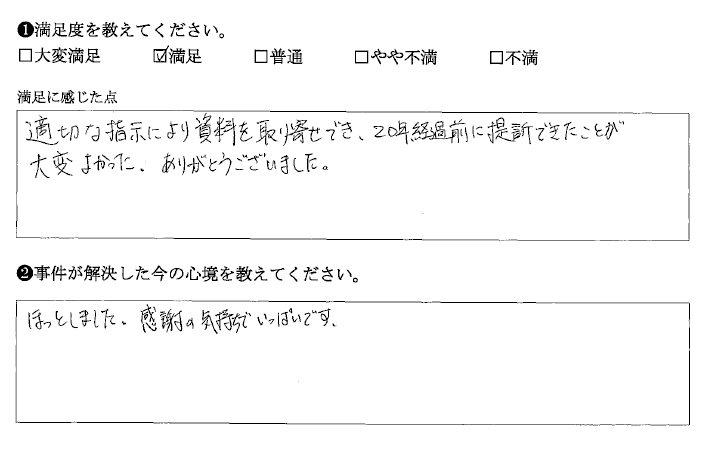 ❶満足度を教えてください。
□大変満足 ☑満足 □普通 □やや不満 □不満
満足に感じた点
適切な指示により資料を取り寄せでき、20年経過前に提訴できたことが
大変よかった、ありがとうございました。
❷事件が解決した今の心境を教えてください。
ほっとしました、感謝の気持ちでいっぱいです、